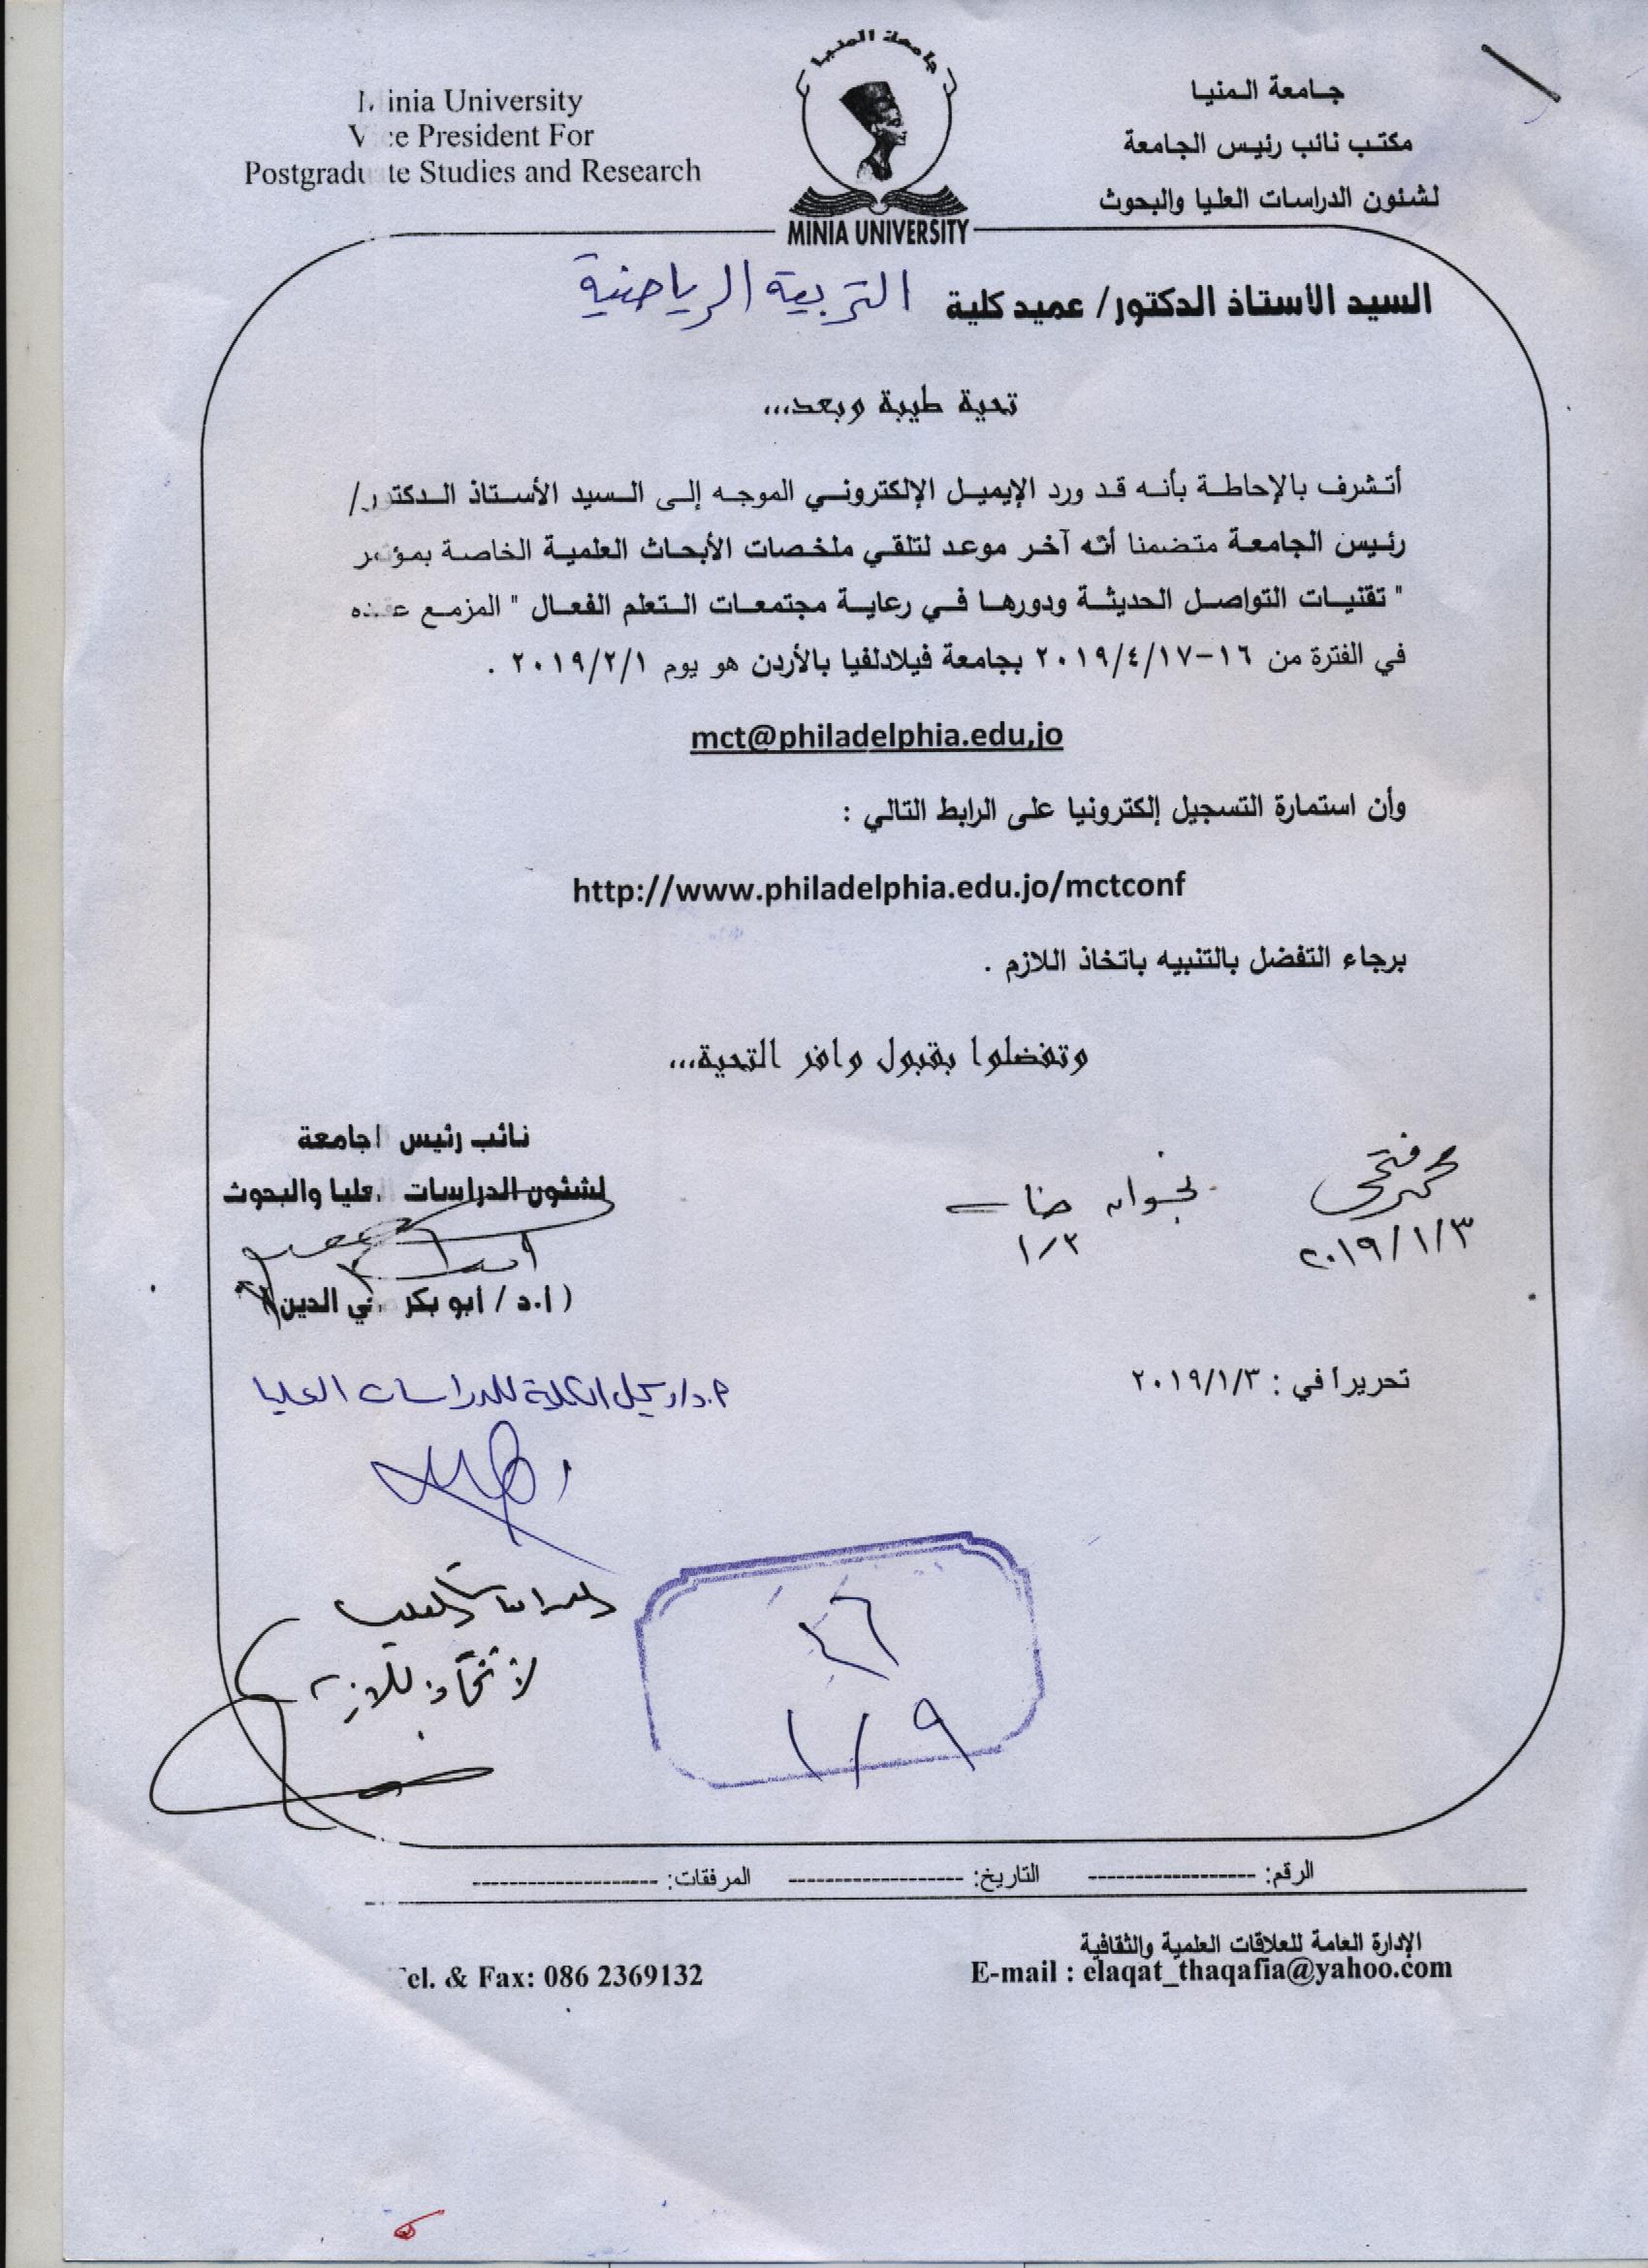 Minia University
Vice President For
Postgraduate Studies and Research
جامعة المنيا
MINIA UNIVERSITY
جامعة المنيا
مكتب نائب رئيس الجامعة
لشئون الدراسات العليا والبحوث
السيد الأستاذ الدكتور/ عميد كلية التربية الرياضية
تحية طيبة وبعد...
أتشرف بالإحاطة بأنه قد ورد الإيميل الإلكتروني الموجه إلى السيد الأستاذ الدكتور/
رئيس الجامعة متضمنا أنه آخر موعد لتلقي ملخصات الأبحاث العلمية الخاصة بمؤتمر
" تقنيات التواصل الحديثة ودورها في رعاية مجتمعات التعلم الفعال " المزمع عقده
في الفترة من ١٦-٢٠١٩/٤/١٧ بجامعة فيلادلفيا بالأردن هو يوم ٢٠١٩/٢/١ .
mct@philadelphia.edu,jo
وأن استمارة التسجيل إلكترونيا على الرابط التالي :
http://www.philadelphia.edu.jo/mctconf
برجاء التفضل بالتنبيه باتخاذ اللازم .
وتفضلوا بقبول وافر التحية...
نائب رئيس الجامعة
لشئون الدراسات العليا والبحوث
(أ.د / أبو بكر محي الدين)
محمد فتحى
٢٠١٩/١/٣
١/٣
تحريرا في : ٢٠١٩/١/٣
أ.د/ وكيل الكلية للدراسات العليا
الدراسات العليا
لاتخاذ اللازم
٤٦
١/٩
الرقم: ------------------ التاريخ: ------------------- المرفقات: --------------------
الإدارة العامة للعلاقات العلمية والثقافية
E-mail : elaqat_thaqafia@yahoo.com
Tel. & Fax: 086 2369132